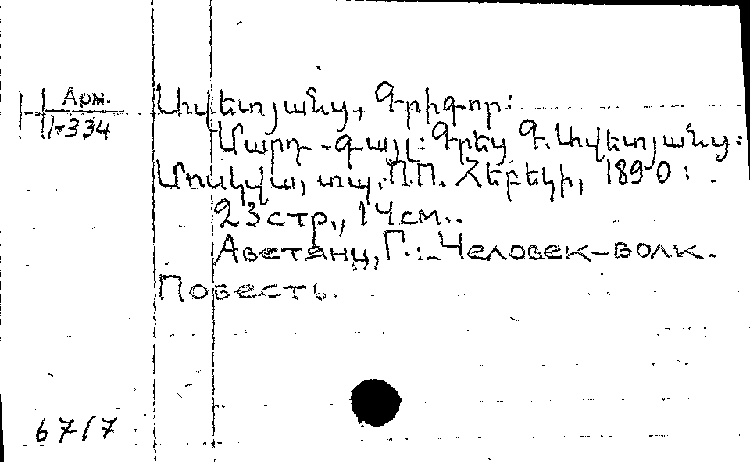 Арм.
1-334
Ավետյանց, Գրիգոր:
Մարդ-գայլ: Գրեց Գ. Ավետյանց:
Մոսկվա, տպ. Պ.Պ. Հերբեկի, 1890:
23 стр., 14 см..
Аветянц, Г.: Человек-волк.
Повесть.
6717